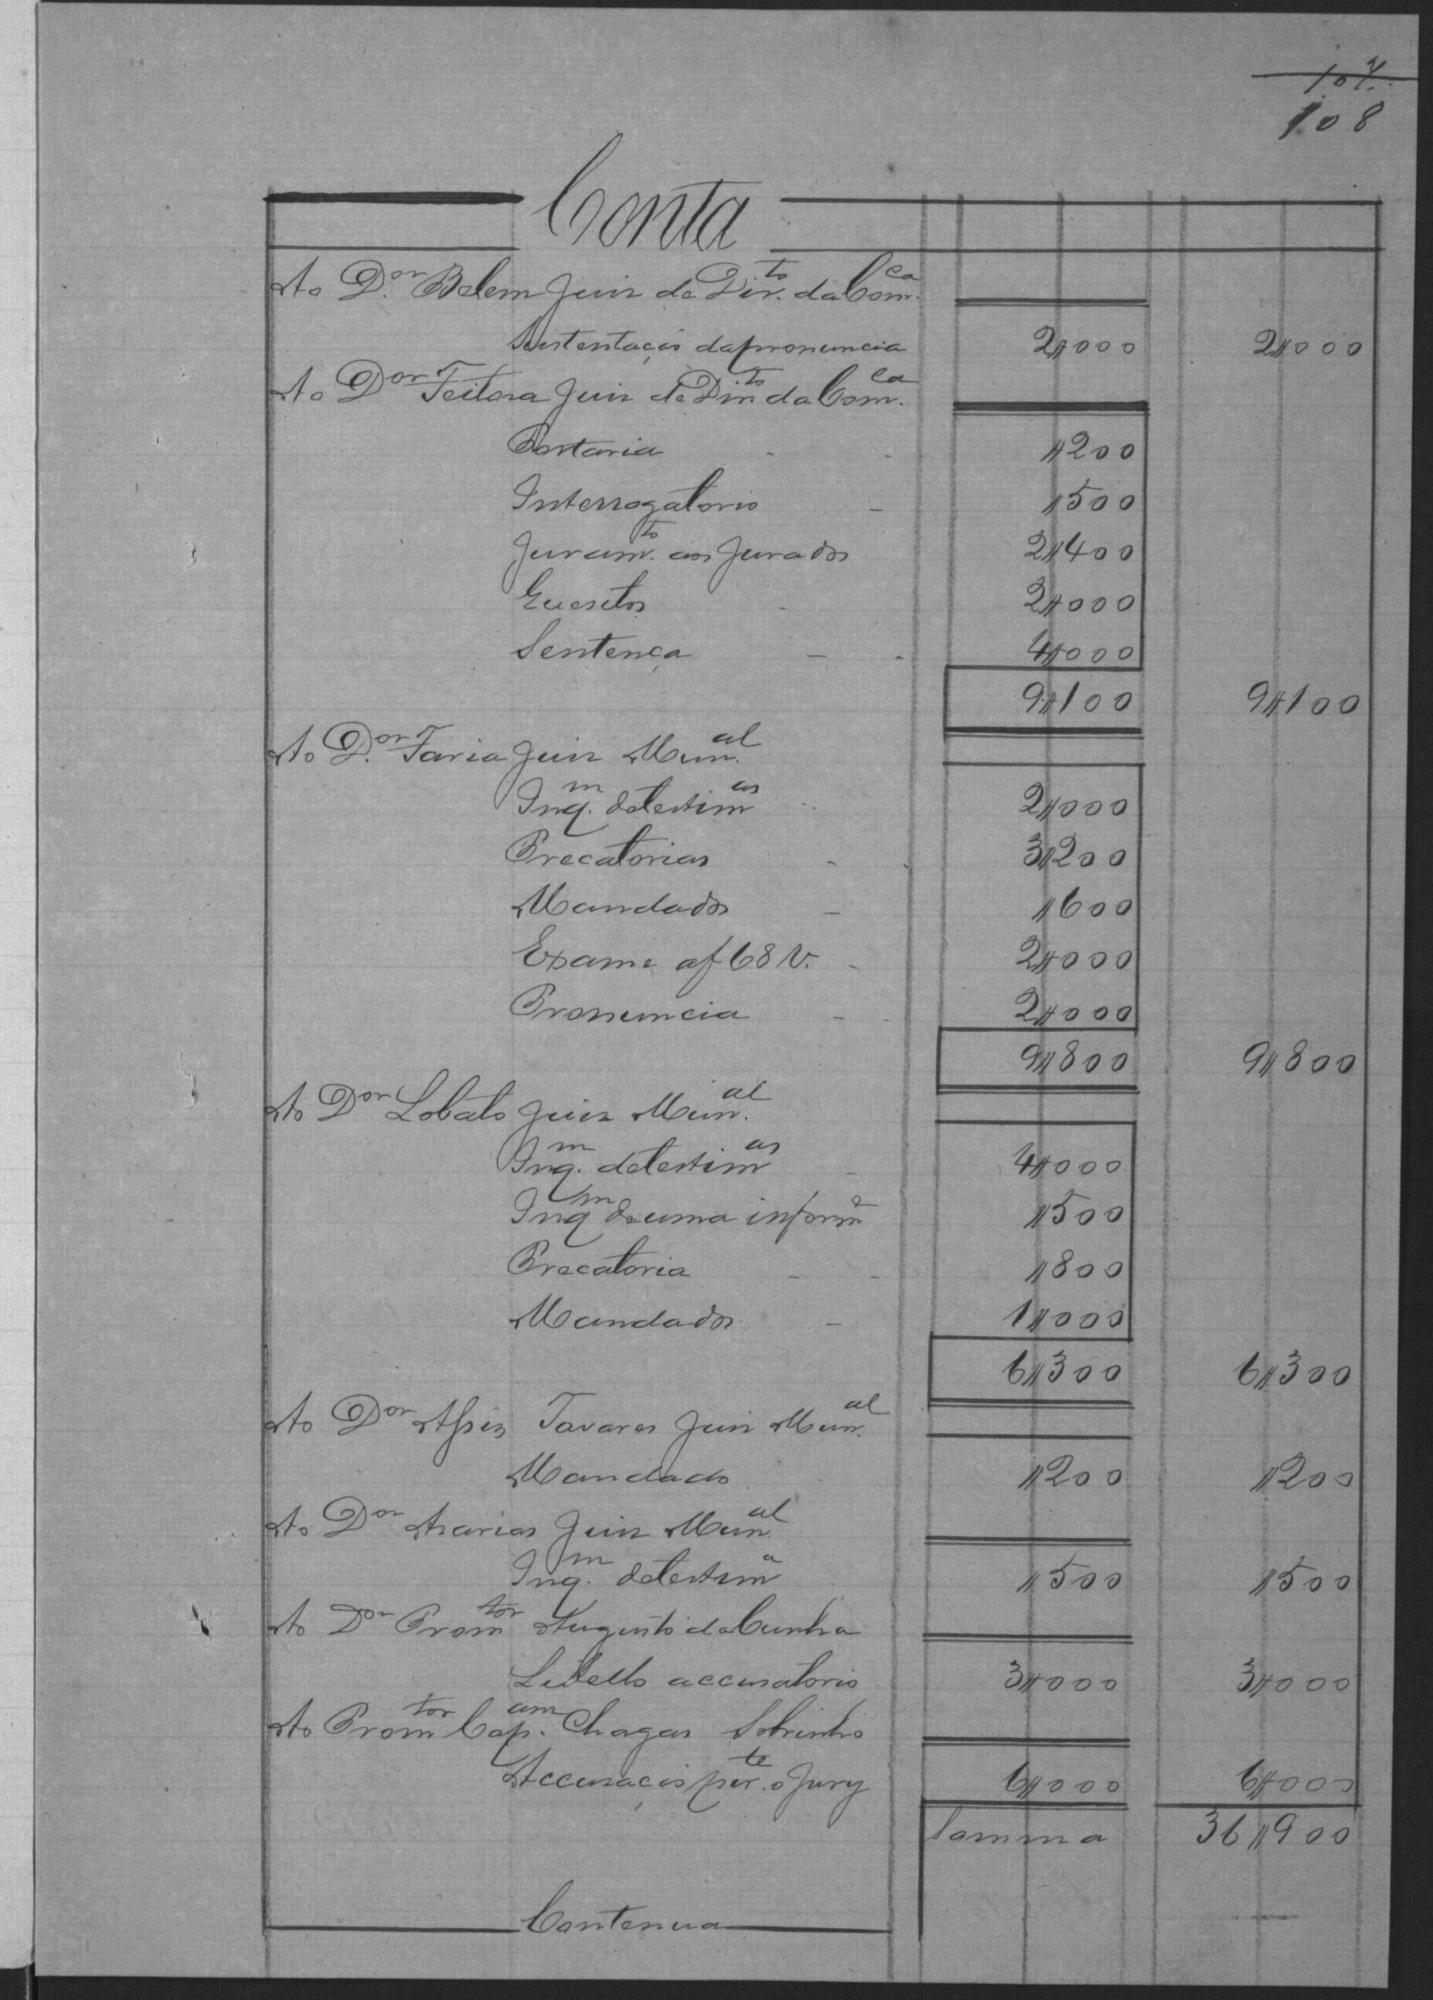 107.
108
Conta
Ao D.or Belem Juiz de Dir.to da Com.ca
Sustentação da pronuncia 2$000 2$000
Ao Dor Feitosa Juiz de Dirto da Com.ca
Portaria - - $200
Interrogatorio - $500
Juram.to aos Jurados 2$400
Quesitos - 2$000
Sentença - - 4$000
9$100 9$100
Ao D.or Faria Juiz Mun.al
Inq.m de testim.as 2$000
Precatorias - - 3$200
Mandados - $600
Exame a f 68 V. - 2$000
Pronuncia - - 2$000
9$800 9$800
Ao Dor Lobato Juiz Mun.al
Inq.m de testim.as - 4$000
Inqm de uma informe $500
Precatoria - - $800
Mandados - 1$000
6$300 6$300
Ao Dor Assis Tavares Juiz Mun.al
Mandado $200 $200
Ao Dor Juiz Mun.al
Inq.m de testima $500 $500
Ao Dor Promtor Augusto da Cunha
Libello accusatorio 3$000 3$000
Ao Promtor Cap.am Chagas Sobrinho
Accusação per.te o Jury 6$000 6$000
Somma 36$900
Contenua